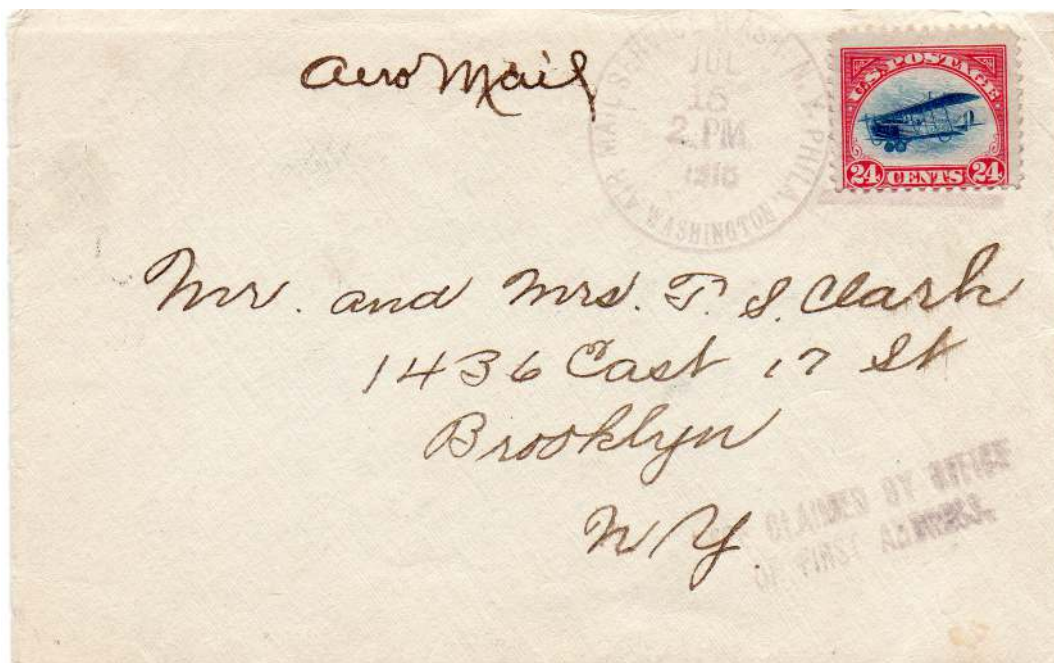 Aero Mail
AIR MAIL SERVICE N.Y. PHILA. WASHINGTON
JUL
15
2 PM
1918
U.S. POSTAGE
24 CENTS 24
Mr. and Mrs. T. S. Clark
1436 East 17 St
Brooklyn
N Y.
CLAIMED BY OFFICE
OF FIRST ADDRESS.